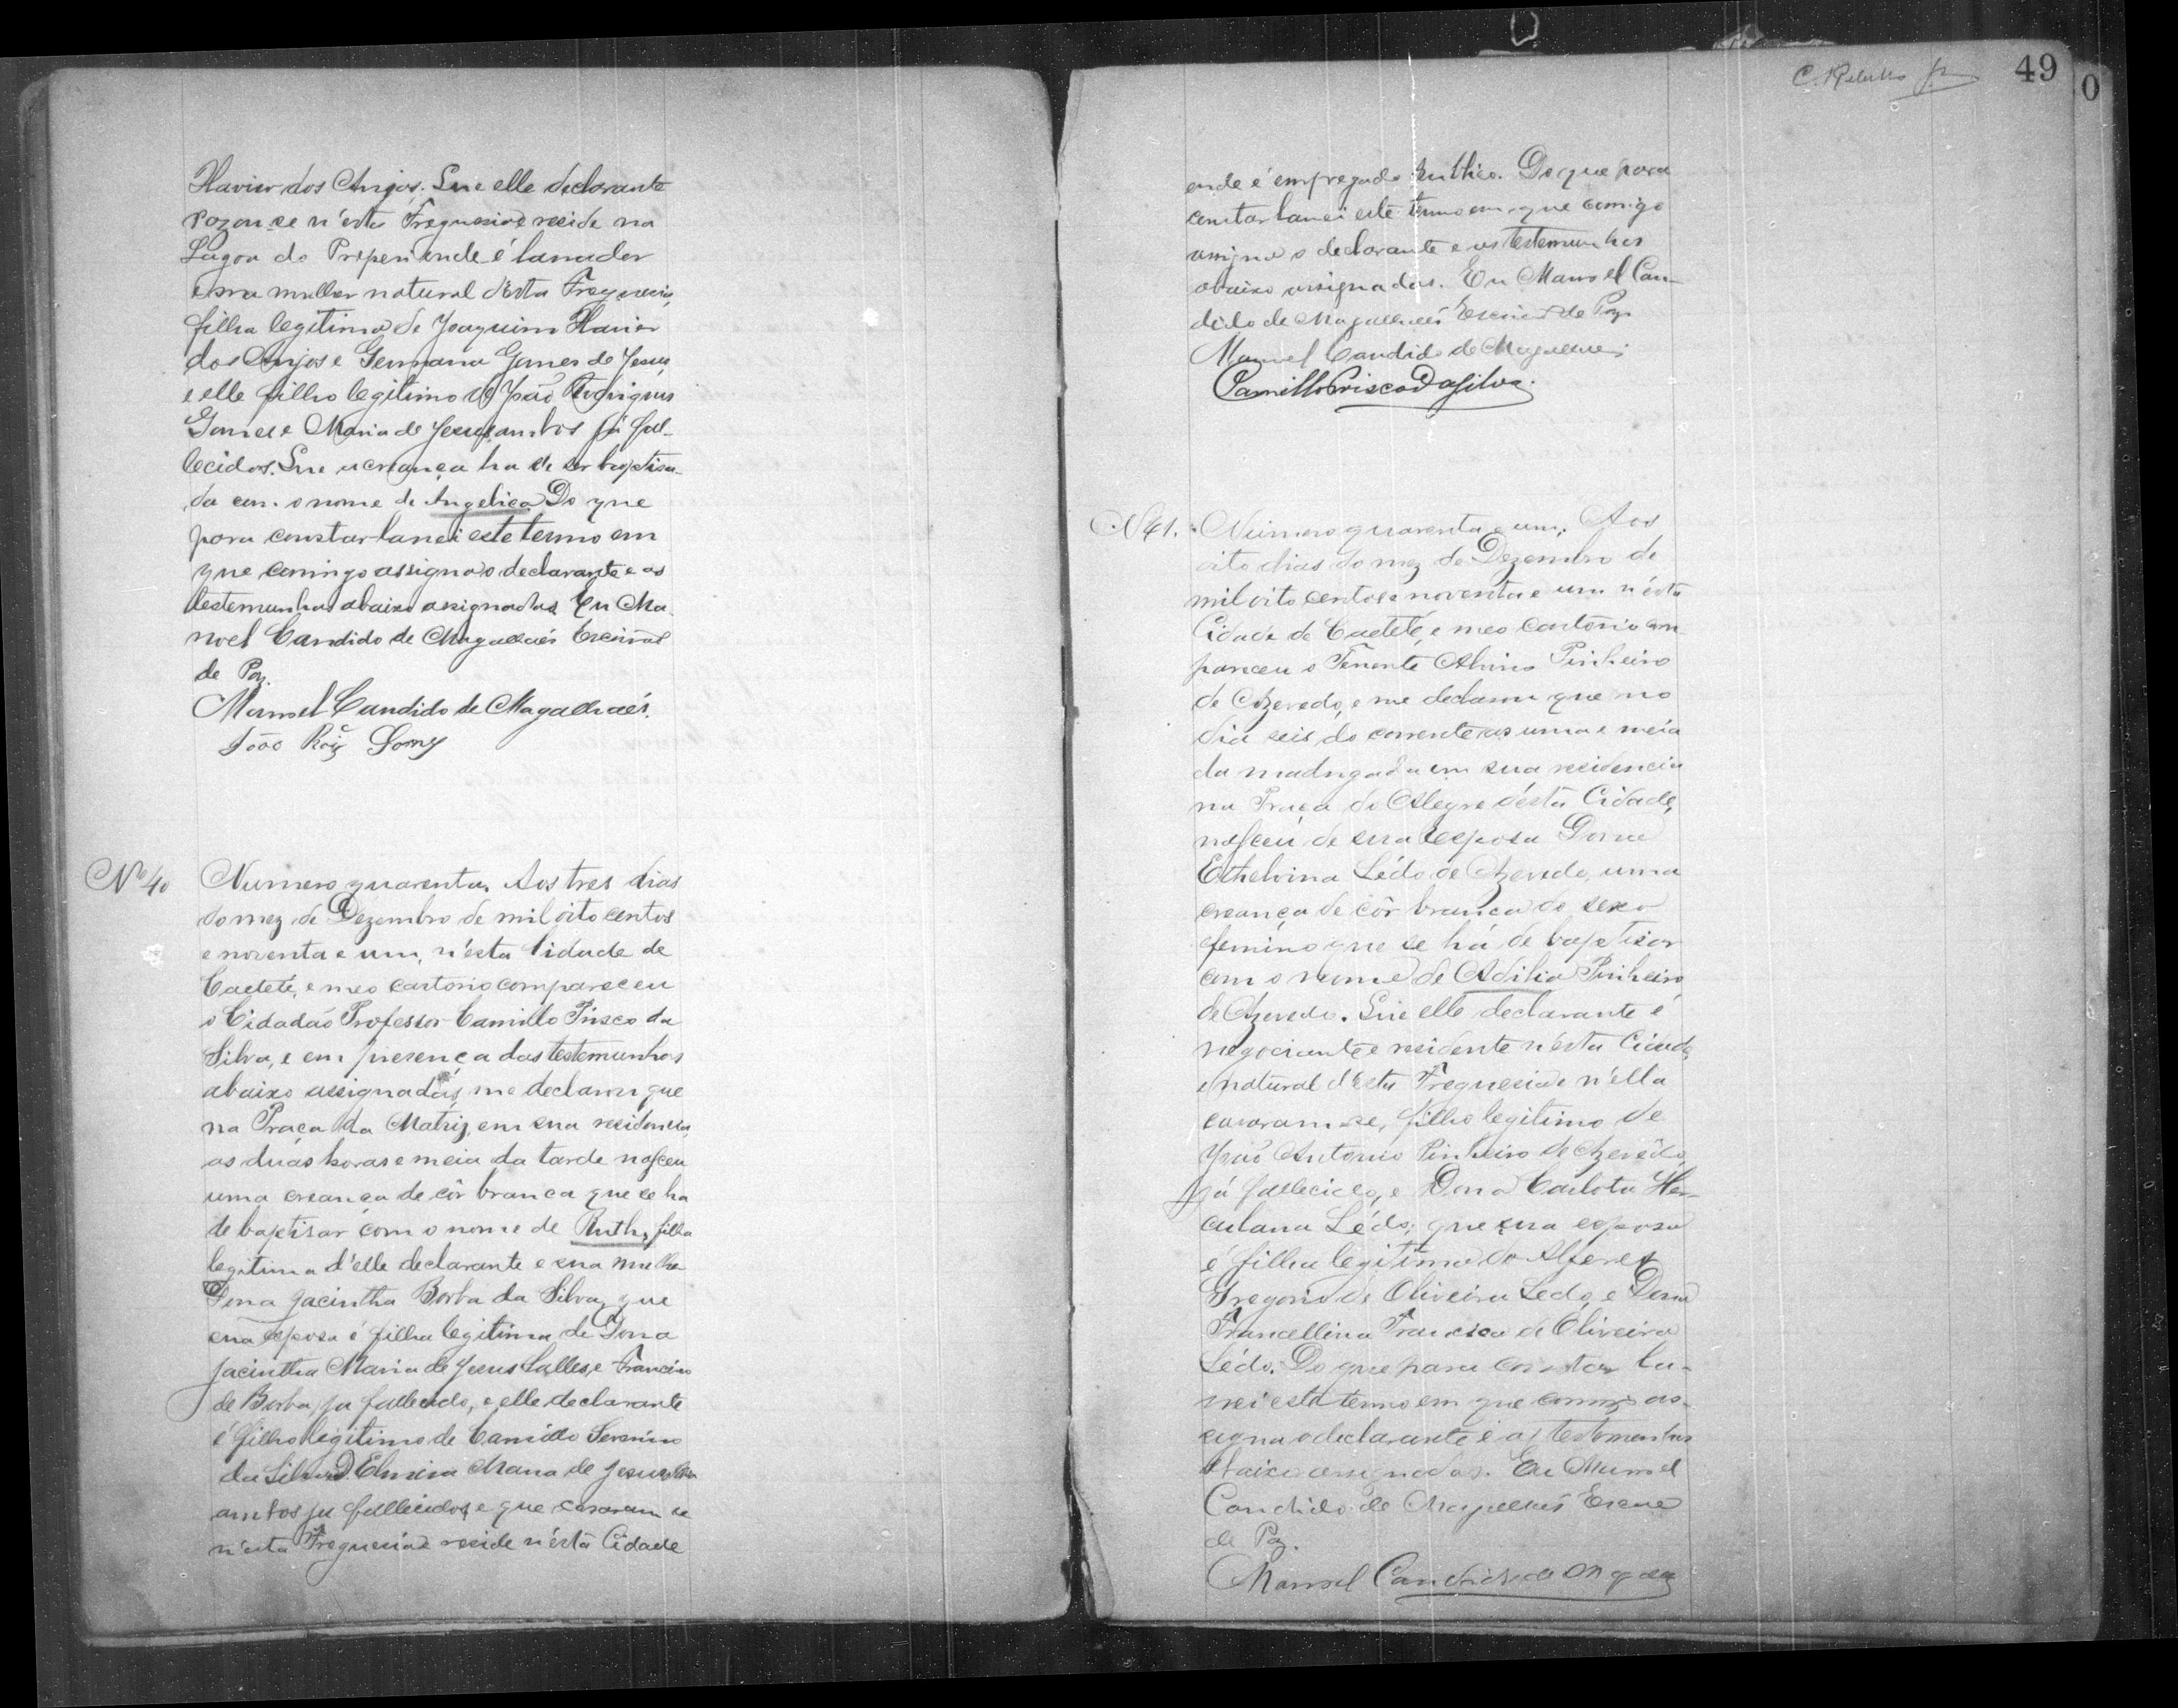 Xavier dos Anjos. Que elle declarante
cazou-se n'esta Freguesia e reside na
Lagoa do onde é lavrador
e sua mulher natural d'esta Freguesia,
filha legitima de Joaquim Xavier
dos Anjos e Germana Gomes de Jesus
e elle filho legitimo de João Rodrigues
Gomes e Maria de Jesus, ambos já fal-
lecidos. Que a creança ha de ser baptisa-
da com o nome de Angelica Do que
para constar lancei este termo em
que comigo assigna o declarante e as
testemunhas abaixo assignadas. Eu Ma-
noel Candido de Magalhaes Escrivão
de Paz.
Manoel Candido de Magalhaes.
João Roiz Gomes
Nº 40 Numero quarenta. Aos tres dias
do mez de Dezembro de mil oito centos
e noventa e um, n'esta Cidade de
Caeteté, e meo cartorio compareceu
o Cidadão Professor Camillo Prisco da
Silva, e em presença das testemunhas
abaixo assignadas, me declarou que
na Praça da Matriz, em sua residencia,
as duas horas e meia da tarde nasceu
uma creança de côr branca que se ha
de baptisar com o nome de Ruth, filha
legitima d'elle declarante e sua mulher
Dona Jacintha Borba da Silva, que
sua esposa é filha legitima de Dona
Jacintha Maria de Jesus Salles, e Francisco
de Borba, ja fallecido, e elle declarante
é filho legitimo de Camillo Severino
da Silva e D. Elmira Maria de Jesus
ambos ja fallecidos, e que casaram se
n'esta Freguesia e reside n'ésta Cidade
C. Rebello Jr 49
0
onde é empregado Publico. Do que para
constar lancei este termo em que comigo
assigna o declarante e as testemunhas
abaixo assignadas. Eu Manoel Can-
dido de Magalhaes Escrivão de Paz
Manoel Candido de Magalhaes
Camillo Prisco da Silva.
N 41. Numero quarenta e um. Aos
oito dias do mez de Dezembro de
mil oito centos e noventa e um n'ésta
Cidade de Caeteté, e meo Cartorio com-
pareceu o Tenente Alvino Pinheiro
de Azevedo, e me declarou que no
dia seis do corrente as uma e meia
da madrugada em sua residencia
na Praça do Alegre d'ésta Cidade,
nasceu de sua Esposa Dona
Ethelvina Lédo de Azevedo, uma
creança de côr branca do sexo
femino que se há de baptisar
com o nome de Adilia Pinheiro
de Azevedo. Que elle declarante é
negociante e residente n'ésta Cidade,
e natural d'ésta Freguesia e n'ella
casaram-se, filho legitimo de
João Antonio Pinheiro de Azevêdo,
já fallecido, e Dona Carlota Her-
culana Lédo; que sua esposa
é filha legitima do Alferes
Gregorio de Oliveira Ledo, e Dona
Francellina Francisca de Oliveira
Lédo. Do que para constar lan-
cei este termo em que comigo as-
signa o declarante e as testemunhas
abaixo assignadas. Eu Manoel
Candido de Magalhaes Escrivão
de Paz.
Manoel Candido de Magalhaes